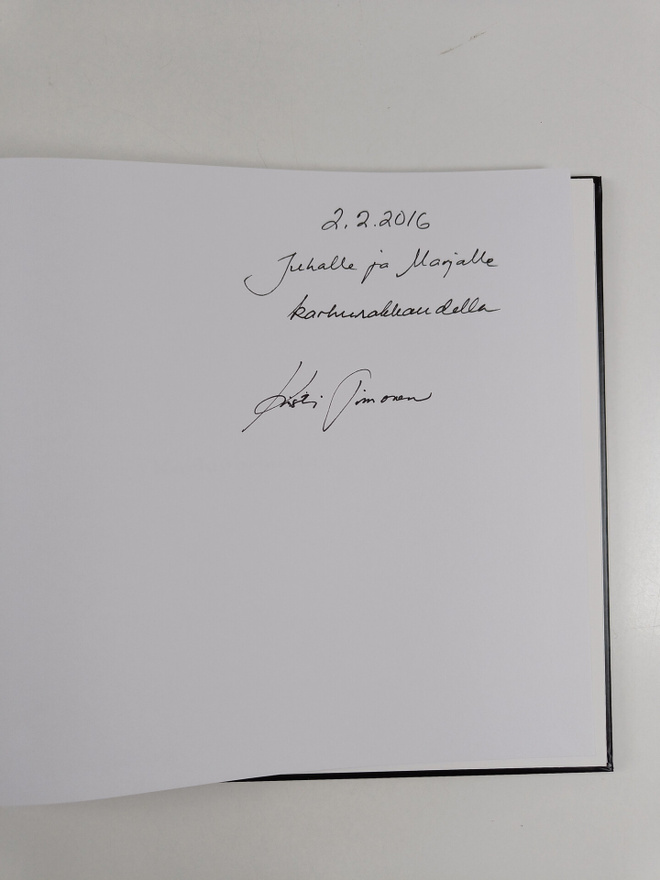 2.2.2016
Juhalle ja Marjalle
karhurakkaudella
Kirsti Timonen